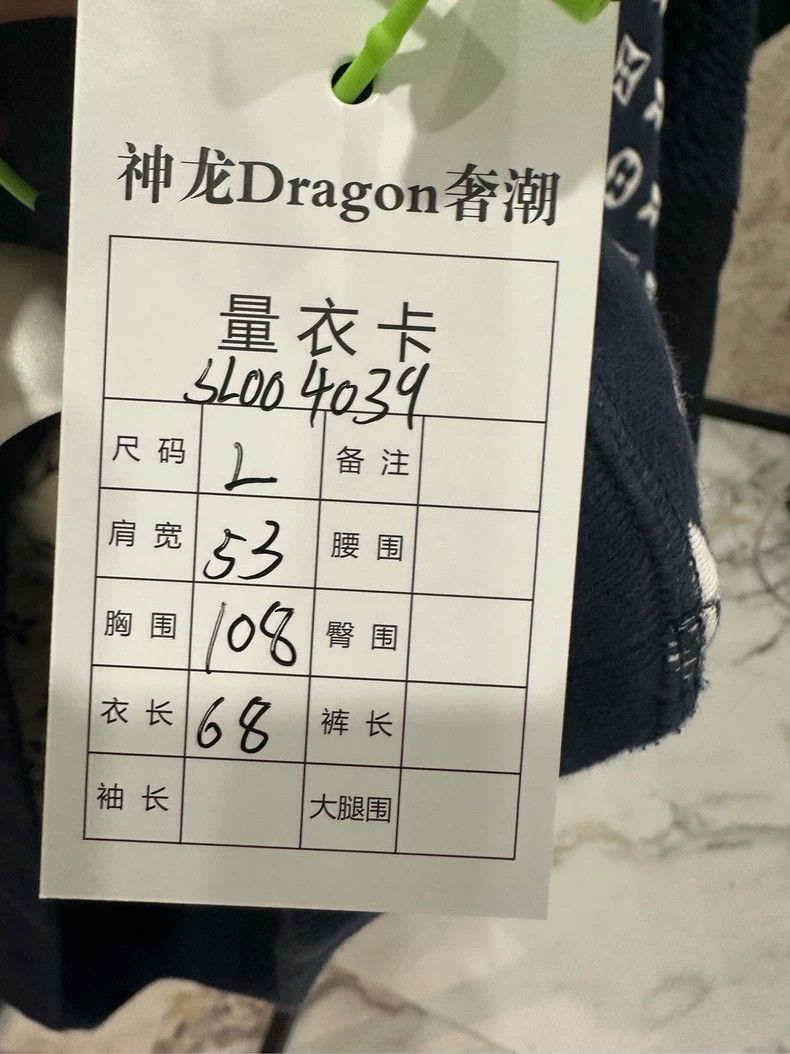 神龙Dragon奢潮
量衣卡
SL004039
尺码 L 备注
肩宽 53 腰围
胸围 108 臀围
衣长 68 裤长
袖长 大腿围